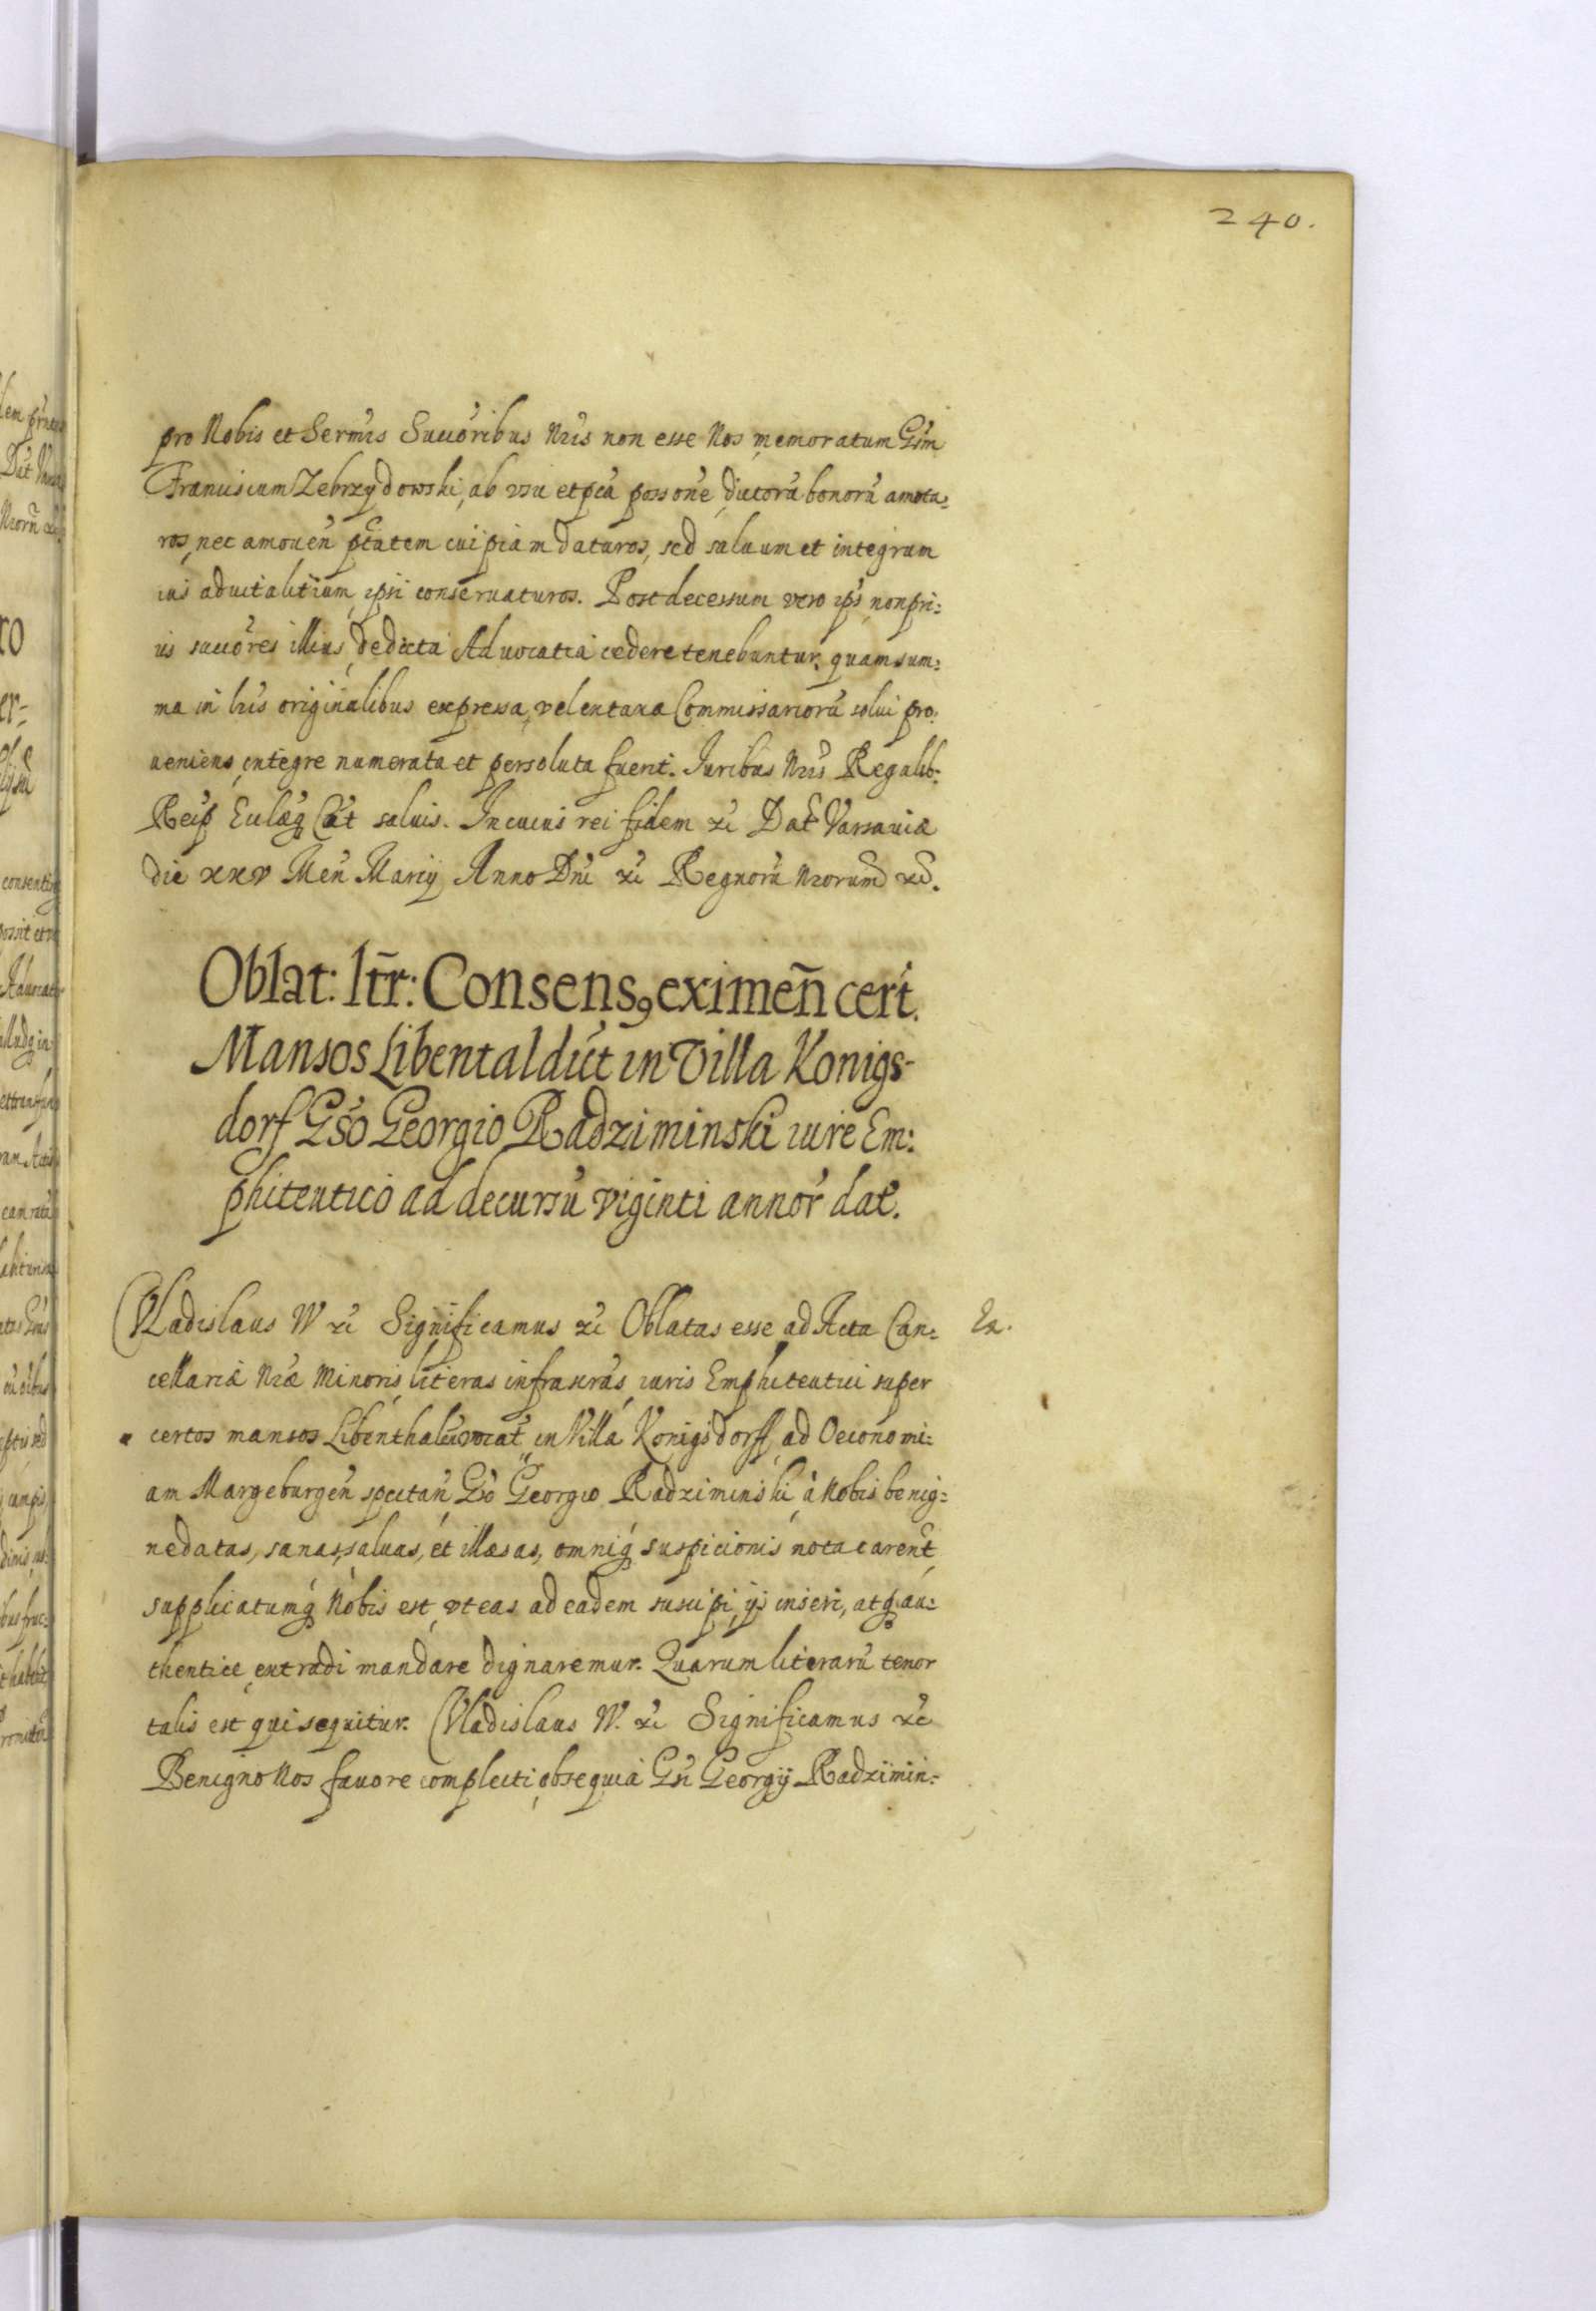 240.
pro Nobis et Sermis Succoribus Nris non esse Nos memoratum Gsm
Franciscum Zebrzydowski, ab vsu et pca possone dictorũ bonorũ amota=
ros, nec amouen ptatem cuipiam daturos, sed saluum et integrum
ius aduitalitium ipsi conseruaturos. Post decessum vero ips non pri=
us succores illius, de dicta Aduocatia cedere tenebuntur, quam sum=
ma in lris originalibus expressa, vel ex taxa Commissariorũ solui pro=
ueniens, integre numerata et persoluta fuerit. Iuribus Nris Regalib:
Reip Eccleq Cat saluis. In cuius rei fidem &c Dat Varsauiæ
die xxv Men Marty Anno Dni &c Regnorũ Nrorum &c.
Oblat: ltr: Consens9 eximen cert.
Mansos Libental dict in Villa Konigs-
dorf Gso Georgio Radziminski iure Em:
phiteutico ad decursũ viginti annor dat.
Vladislaus IV &c Significamus &c Oblatas esse ad Acta Can=
Ex.
cellariæ Nræ Minoris literas infrascras, iuris Emphiteutici super
certos mansos Libenthal vocat in Villa Konigsdorff, ad Oeconomi=
am Margeburgen spectan Gso Georgio Radziminski à Nobis benig=
ne datas, sanas, saluas, et illæsas, omniq suspicionis nota carent,
supplicatumq Nobis est, vt eas ad eadem suscipi, ijs inseri, atq au=
thentice extradi mandare dignaremur. Quarum literarũ tenor
talis est qui sequitur. Vladislaus IV. &c Significamus &c
Benigno Nos fauore complecti obsequia Gsi Georgij Radzimin=